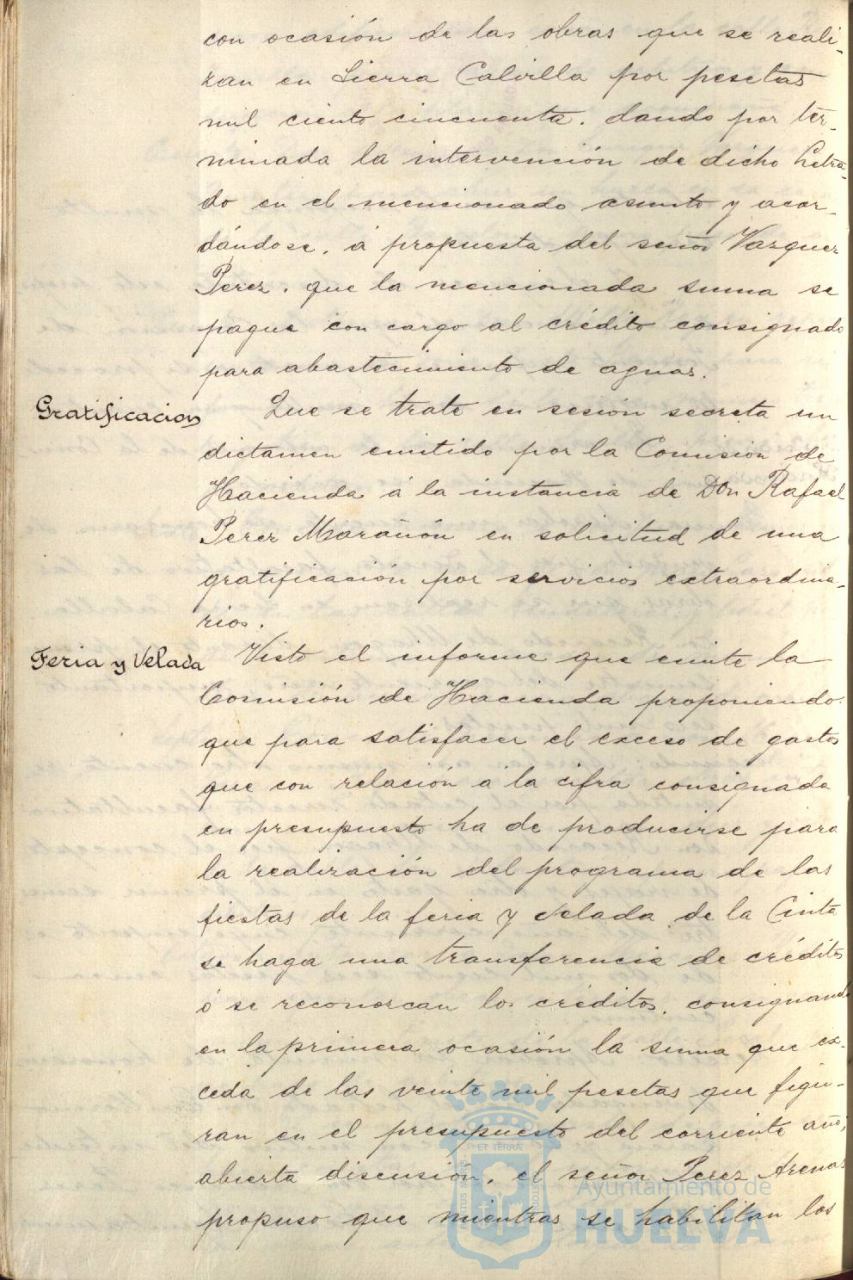 con ocasión de las obras que se reali-
zan en Sierra Calvilla por pesetas
mil ciento cincuenta, dando por ter-
minada la intervención de dicho Letra-
do en el mencionado asunto y acor-
dándose, á propuesta del señor Vazquez
Perez, que la mencionada suma se
pague con cargo al crédito consignado
para abastecimiento de aguas.
Gratificacion Que se trate en sesión secreta un
dictamen emitido por la Comisión de
Hacienda á la instancia de Don Rafael
Perez Marañón en solicitud de una
gratificación por servicios extraordina-
rios.
Feria y Velada Visto el informe que emite la
Comisión de Hacienda proponiendo
que para satisfacer el exceso de gastos
que con relación a la cifra consignada
en presupuesto ha de producirse para
la realización del programa de las
fiestas de la feria y velada de la Cinta
se haga una transferencia de créditos
ó se reconozcan los créditos, consignando
en la primera ocasión la suma que ex-
ceda de las veinte mil pesetas que figu-
ran en el presupuesto del corriente año;
abierta discusión, el señor Perez Arenas
propuso que mientras se habilitan los
Ayuntamiento de
HUELVA